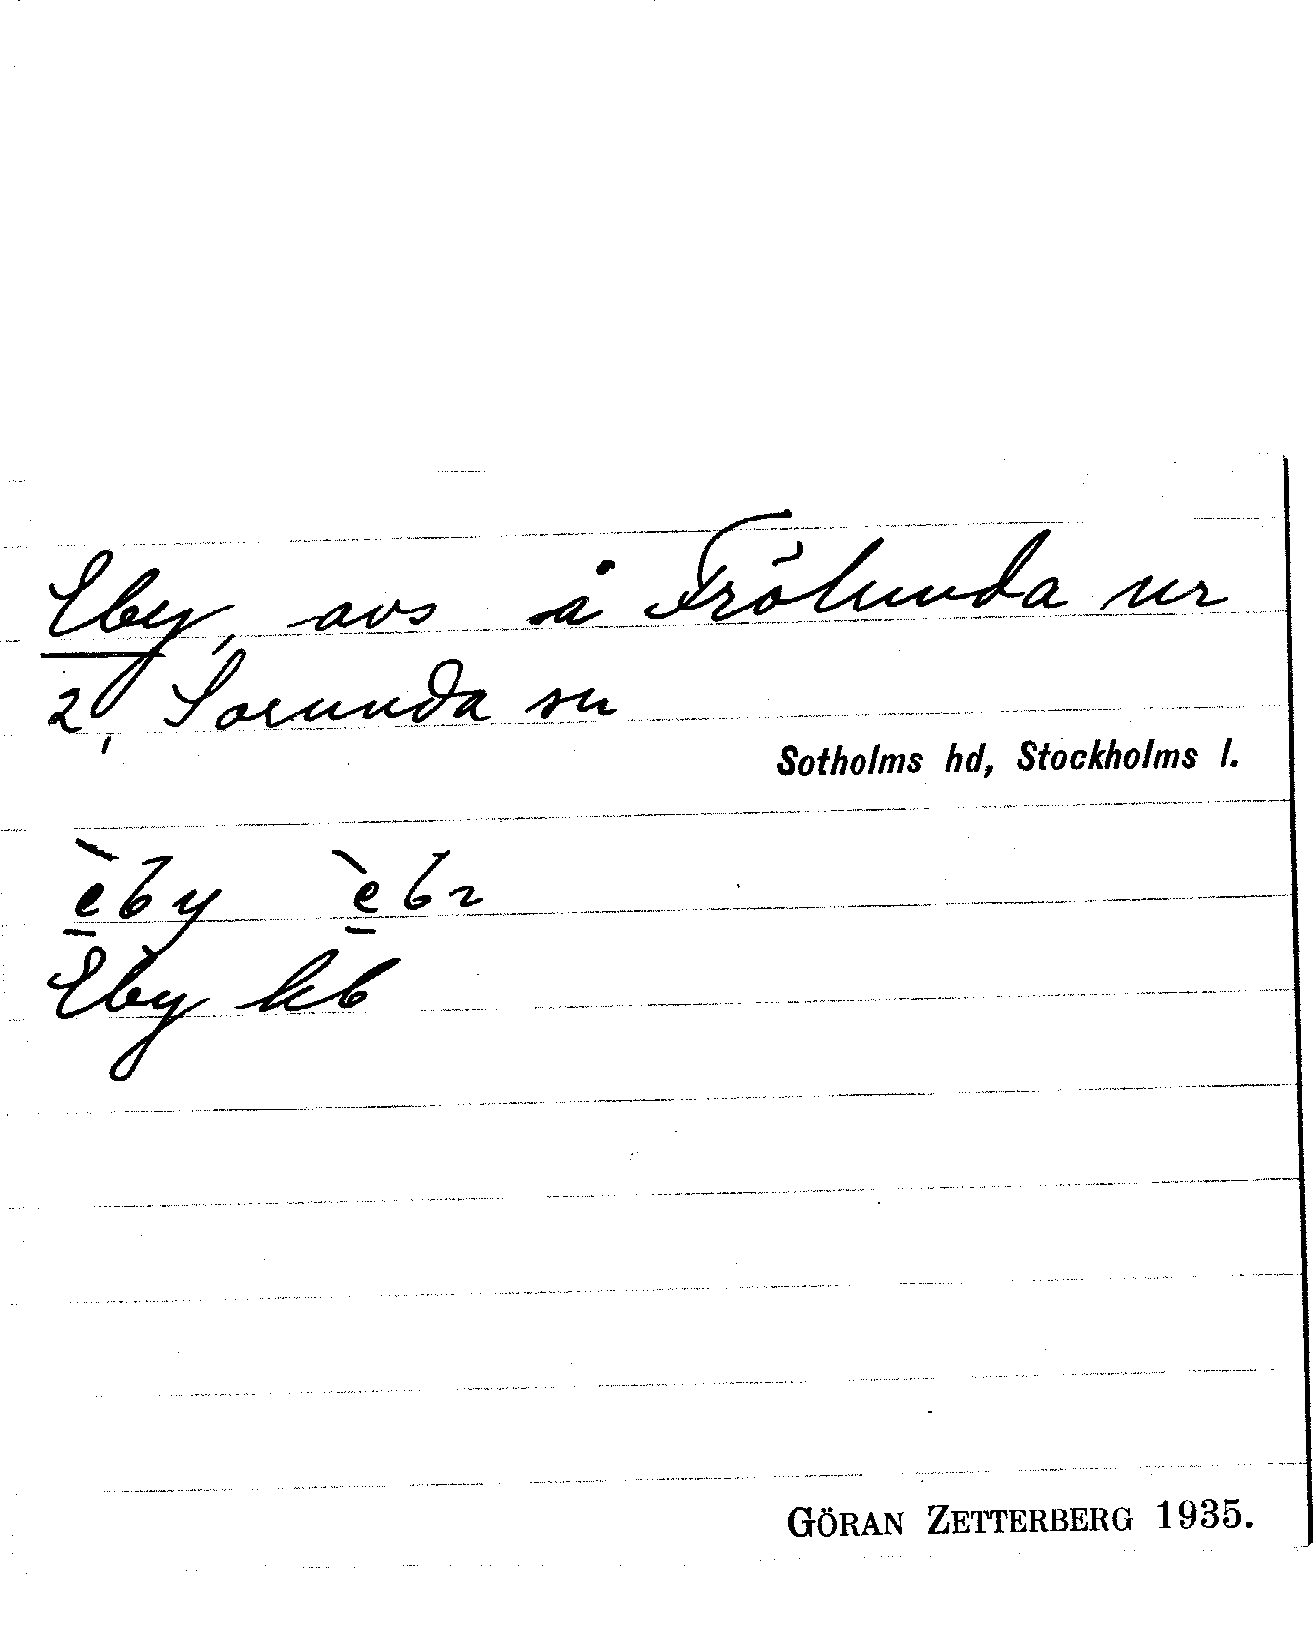 Eby, avs å Frölunda nr
2, Sorunda sn
Sotholms hd, Stockholms l.
è̱by è̱bɿ
Eby kb
GÖRAN ZETTERBERG 1935.